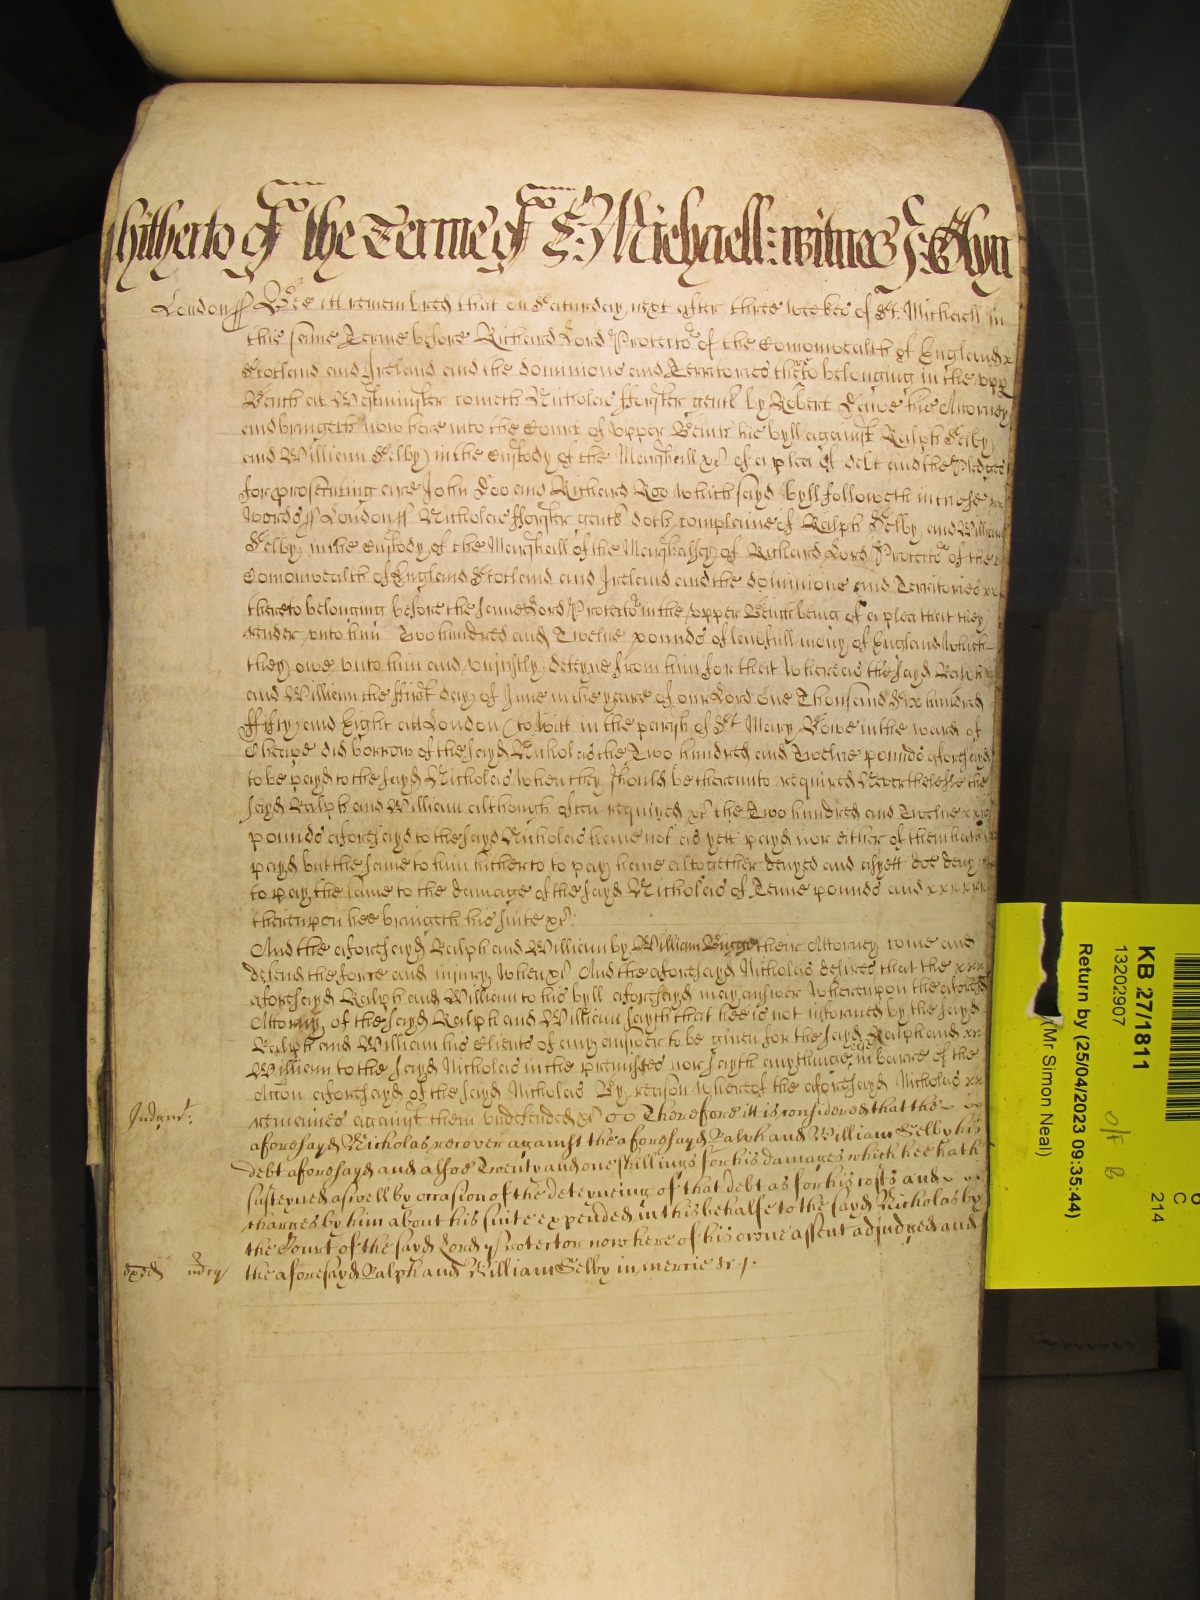 hitherto of the Terme of St. Michaell: witnes J: Glyn
London ss Bee it remembred that on Saturday next after three weekes of St. Michaell in
this same Terme before Richard Lord Protector of the Comonwealth of England x
Scotland and Ireland and the dominions and Territories thereto belonging in the upp
Bench at Westminster cometh Nicholas fforster gentl by Robert his Attorney
and bringeth now here into the Court of upper Bench his byll against Ralph Selby
and William Selby in the Custody of the Marshall xc of a plea of debt and the Pledges
for prosecuting are John Doo and Richard Roo which sayd byll followeth in these
words ss London ss Nicholas fforster gentl doth complaine of Ralph Selby and William
Selby in the Custody of the Marshall of the Marshalsey of Richard Lord Protector of the
Comonwealth of England Scotland and Ireland and the dominions and Territories xx
thereto belonging before the same Lord Protector in the upper Bench being of a plea that they
render unto him Two hundred and Twelve pounds of lawfull mony of England which
they owe unto him and uniustly deteyne from him for that whereas the sayd Ralph
and William the ffirst day of June in the yeare of our Lord one Thousand Six hundred
ffifty and Eight att London (to witt in the parish of St Mary Bowe in the ward of
Cheape did borrow of the sayd Nicholas the Two hundred and Twelve pounds aforesayd
to be payd to the sayd Nicholas when they should be thereunto required Neverthelesse the
sayd Ralph and William although often required xc the Two hundred and Twelve xx
pounds aforesayd to the sayd Nicholas have not as yett payd nor either of them hath
payd but the same to him hitherto to pay have altogether denyed and as yett doe deny
to pay the same to the damage of the sayd Nicholas of Tenne pounds and xxxxxx
thereupon hee bringeth his suite xc:
And the aforesayd Ralph and William by William their Attorney come and
defend the force and iniury when xc And the aforesayd Nicholas desires that the xxx
aforesayd Ralph and William to his byll aforesayd may answer whereupon the aforesd
Attorny of the sayd Ralph and William sayth that hee is not informed by the sayd
Ralph and William his Clients of any answer to be given for the sayd Ralph and xx
William to the sayd Nicholas in the premisses nor sayth anything in barre of the
accon aforesayd of the sayd Nicholas By reason whereof the aforesayd Nicholas xx
remaines against them undefended xc Therefore itt is considered that the
aforesayd Nicholas recover against the aforesayd Ralph and William Selby his
Judgmt:
debt aforesayd and alsoe Twenty and one shillings for his damages which hee hath
susteyned aswell by occasion of the deteyneing of that debt as for his costs and
charges by him about his suite expended in this behalfe to the sayd Nicholas by
the Court of the sayd Lord Protector now here of his owne assent adjudged and
the aforesayd Ralph and William Selby in mercie &c /.
mercy
KB 27/1811
13202907
Return by (25/04/2023 09:35:44)
(Mr Simon Neal)
C
214